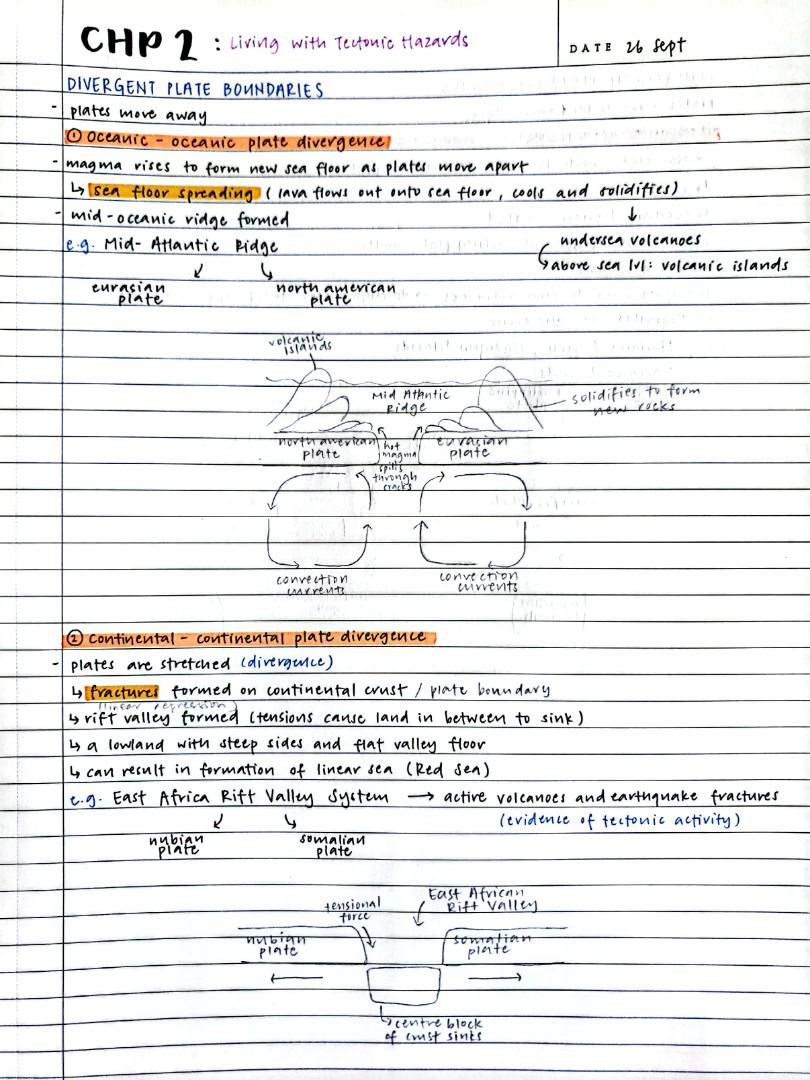 CHP 2 : Living with Tectonic Hazards
DATE 26 Sept
DIVERGENT PLATE BOUNDARIES
- plates move away
① Oceanic - oceanic plate divergence
- magma rises to form new sea floor as plates move apart
↳ sea floor spreading (lava flows out onto sea floor, cools and solidifies)
- mid-oceanic ridge formed
↓
undersea volcanoes
e.g. Mid-Atlantic Ridge
↳ above sea lvl: volcanic islands
eurasian plate
north american plate
volcanic islands
Mid Atlantic Ridge
solidifies to form new rocks
north american plate
hot magma spills through cracks
eurasian plate
convection currents
convection currents
② Continental - continental plate divergence
- plates are stretched (divergence)
↳ fractures formed on continental crust / plate boundary
(linear depression)
↳ rift valley formed (tensions cause land in between to sink)
↳ a lowland with steep sides and flat valley floor
↳ can result in formation of linear sea (Red Sea)
e.g. East Africa Rift Valley System → active volcanoes and earthquake fractures
(evidence of tectonic activity)
nubian plate
somalian plate
tensional force
East African Rift Valley
nubian plate
somalian plate
↳ centre block of crust sinks